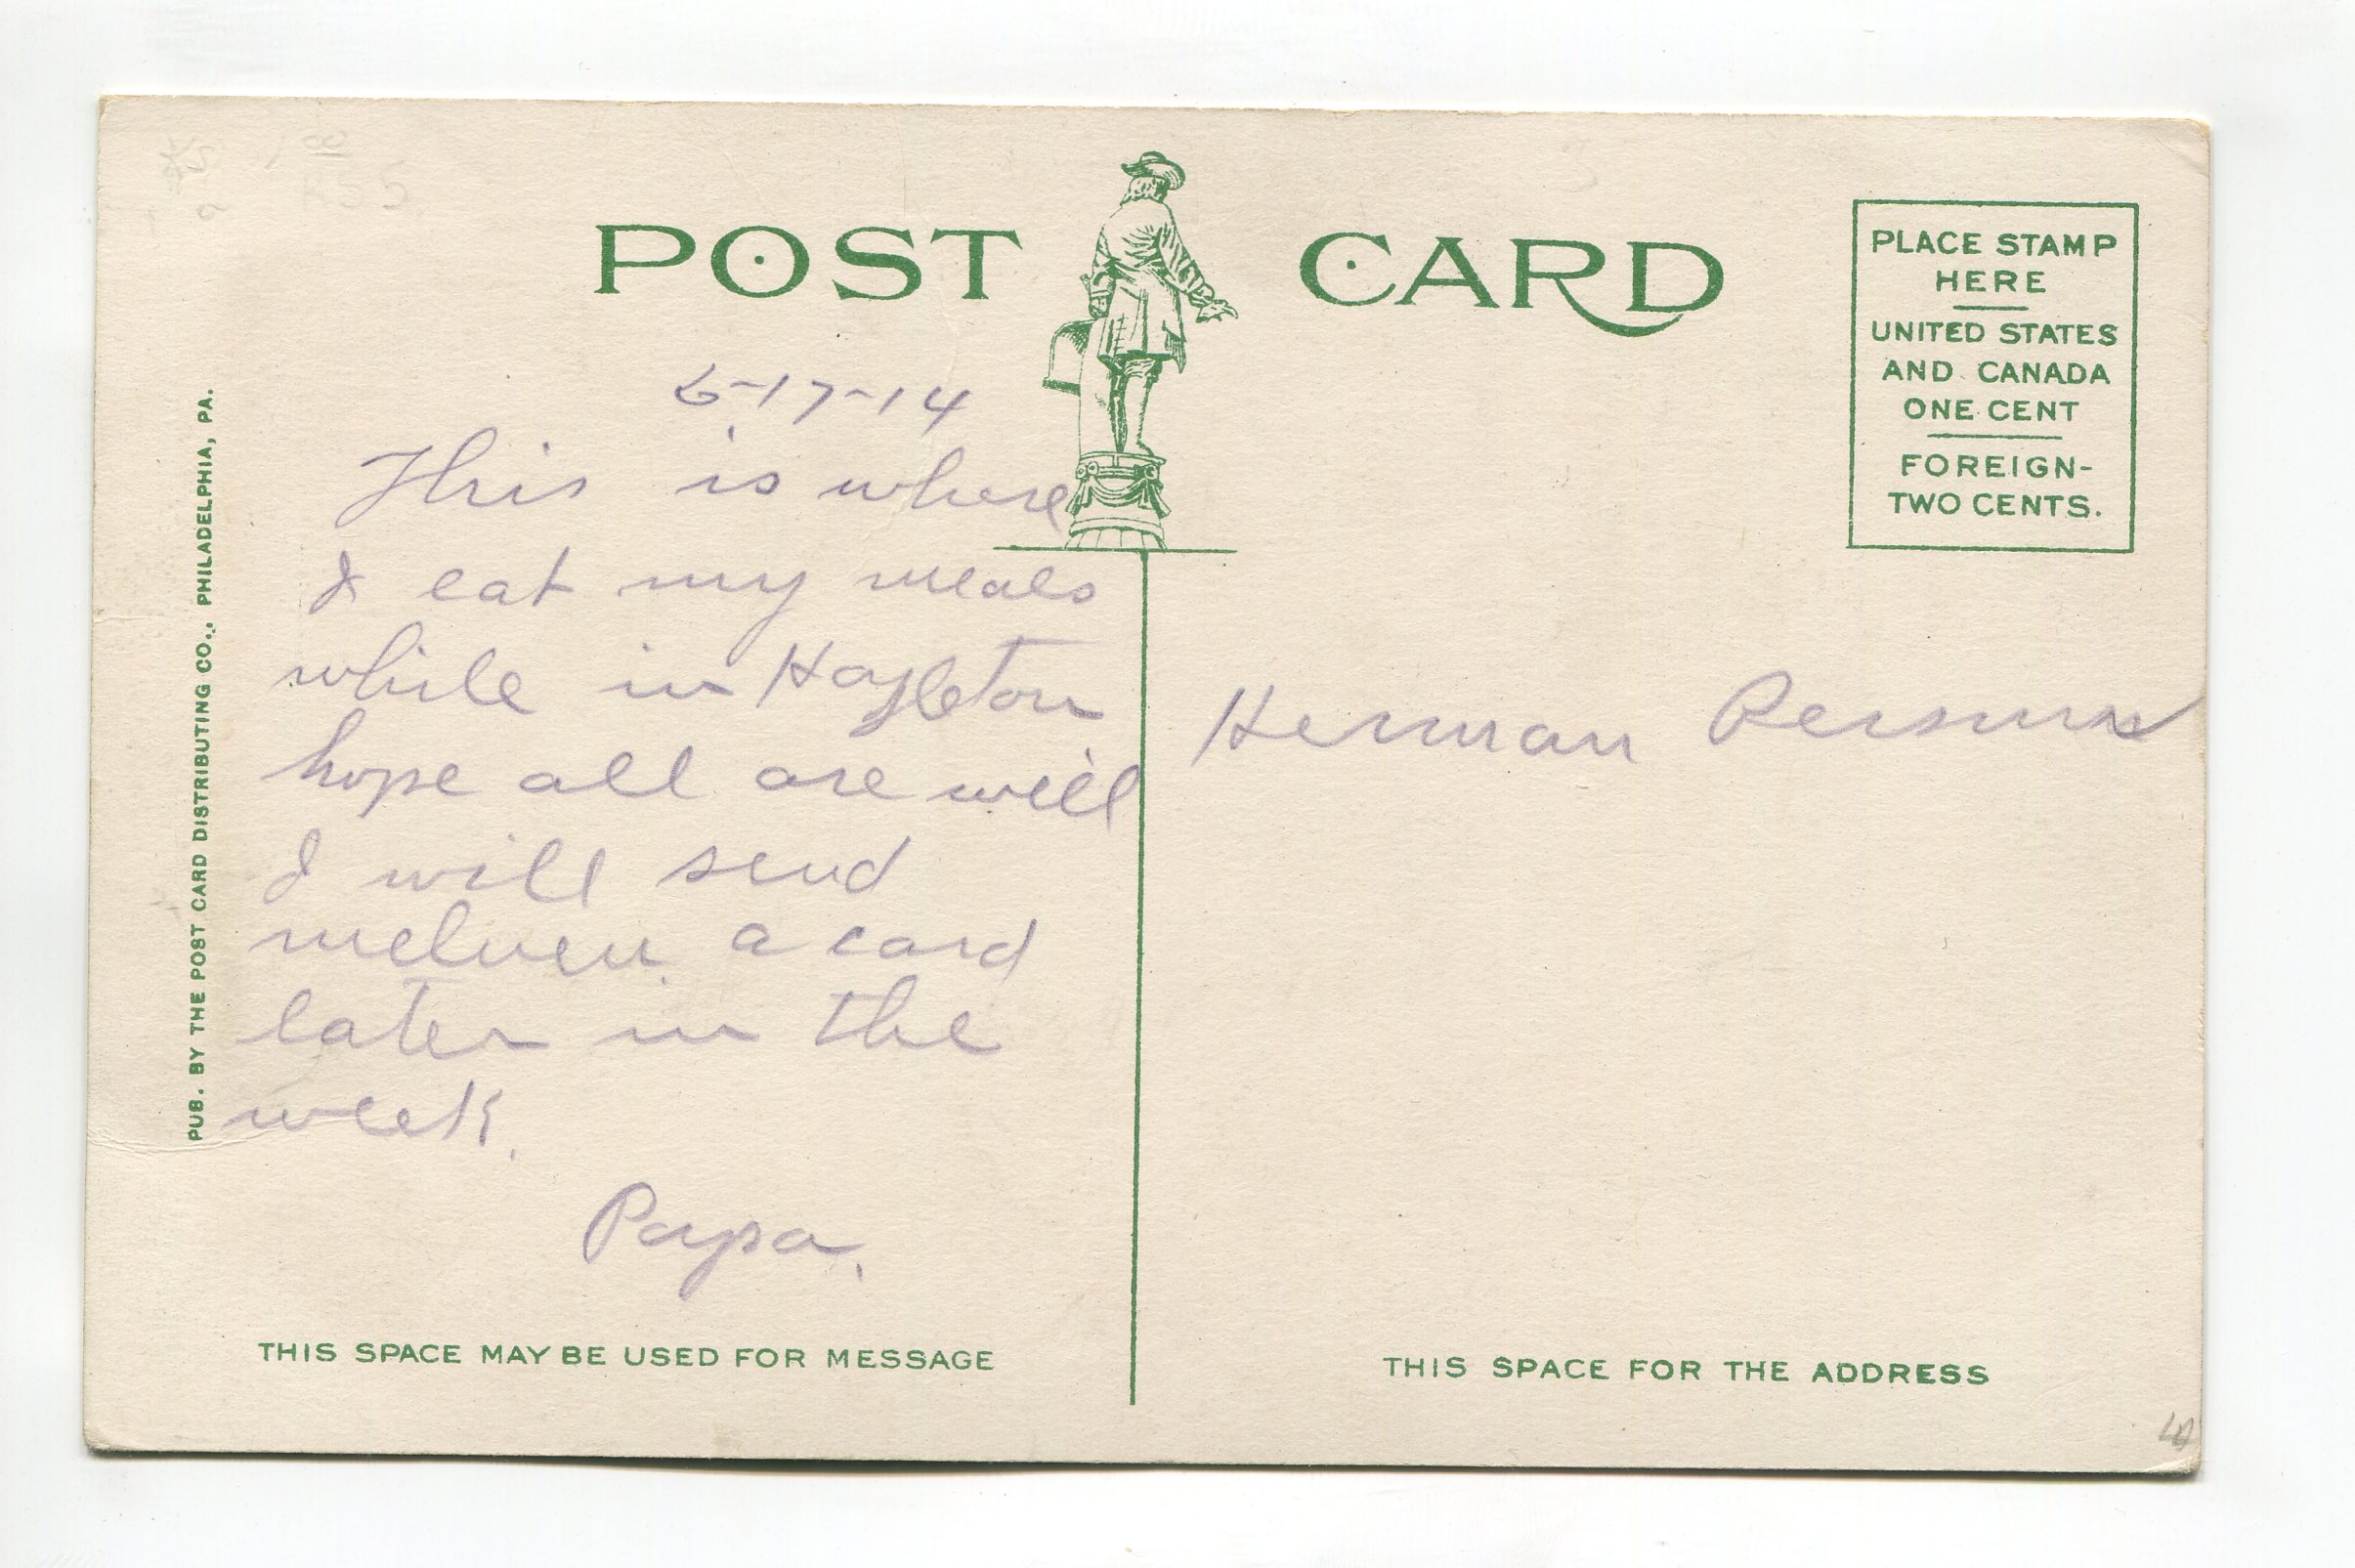 POST CARD
PLACE STAMP
HERE
UNITED STATES
AND CANADA
ONE CENT
FOREIGN-
TWO CENTS.
6-17-14
This is where
I eat my meals
while in Hazleton
hope all are well
I will send
melven a card
later in the
week.
Papa.
Herman
PUB. BY THE POST CARD DISTRIBUTING CO., PHILADELPHIA, PA.
THIS SPACE MAY BE USED FOR MESSAGE
THIS SPACE FOR THE ADDRESS